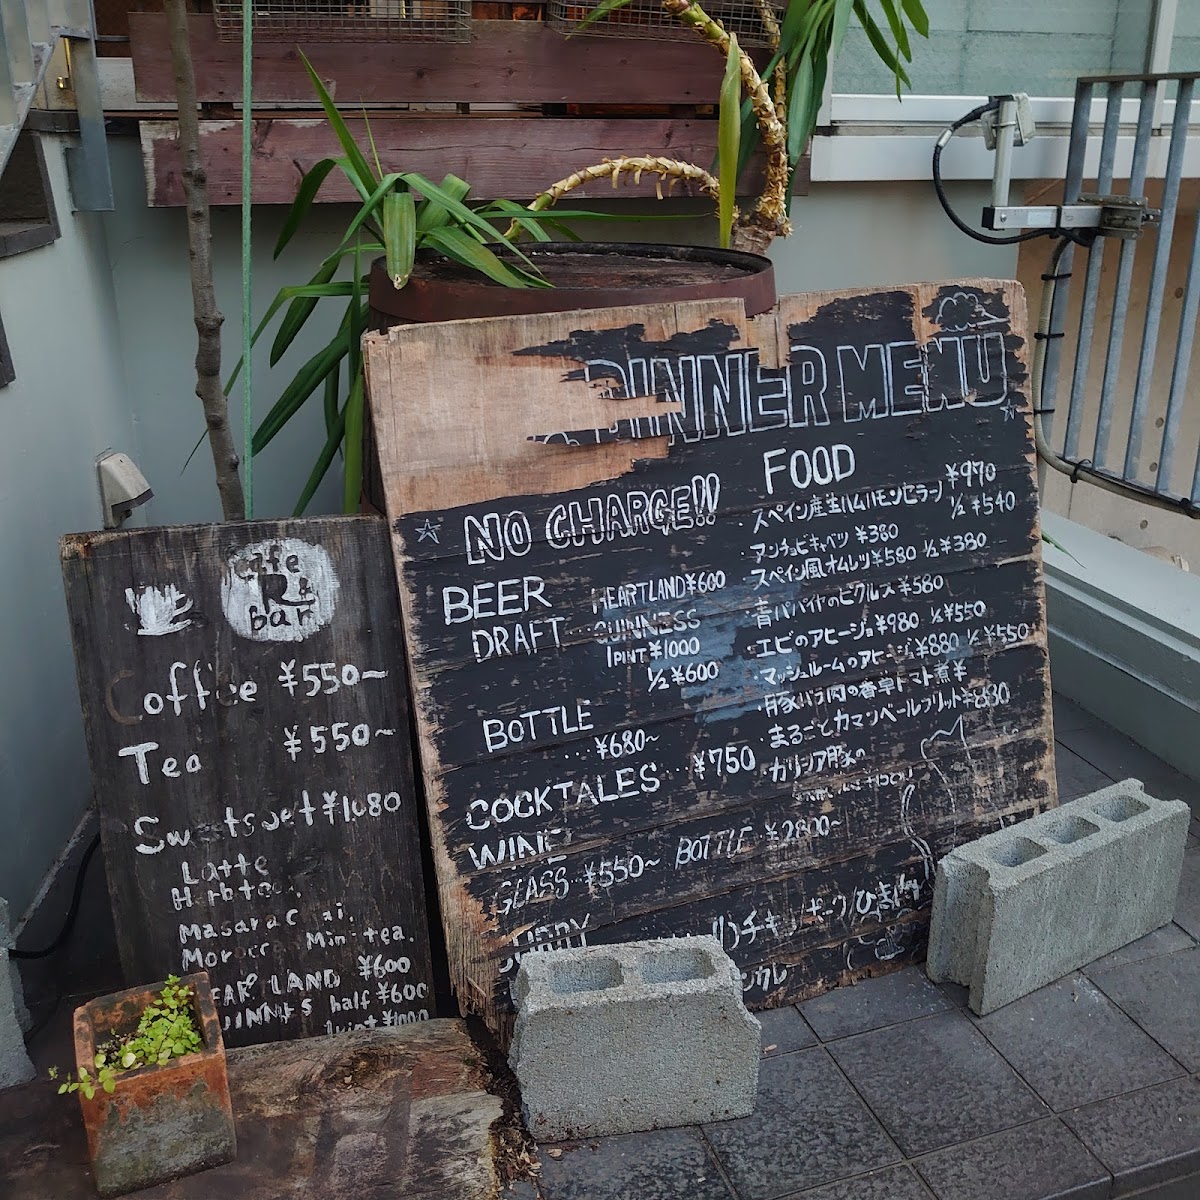 cafe
R&
bar
Coffee ¥550~
Tea ¥550~
Sweetset ¥1080
Latte
Herbtea.
Moroccan Mintea.
LAND ¥600
half ¥600
1pint ¥1000
DINNER MENU
NO CHARGE!!
BEER
DRAFT HEARTLAND ¥600
GUINNESS
1PINT ¥1000
1/2 ¥600
BOTTLE
...¥680~
COCKTALES...¥750
WINE
GLASS...¥550~ BOTTLE ¥2800~
CURRY
FOOD
・スペイン産生ハム ハモンセラーノ ¥970
1/2 ¥540
・アンチョビキャベツ ¥380
・スペイン風オムレツ ¥580 1/2 ¥380
・青パパイヤのピクルス ¥580
・エビのアヒージョ ¥980 1/2 ¥550
・マッシュルームのアヒージョ ¥880 1/2 ¥550
・豚バラ肉の香草トマト煮 ¥
・まるごとカマンベールフリット ¥880
・ガリシア豚の
チキン/ポーク/ひまめ
カレ